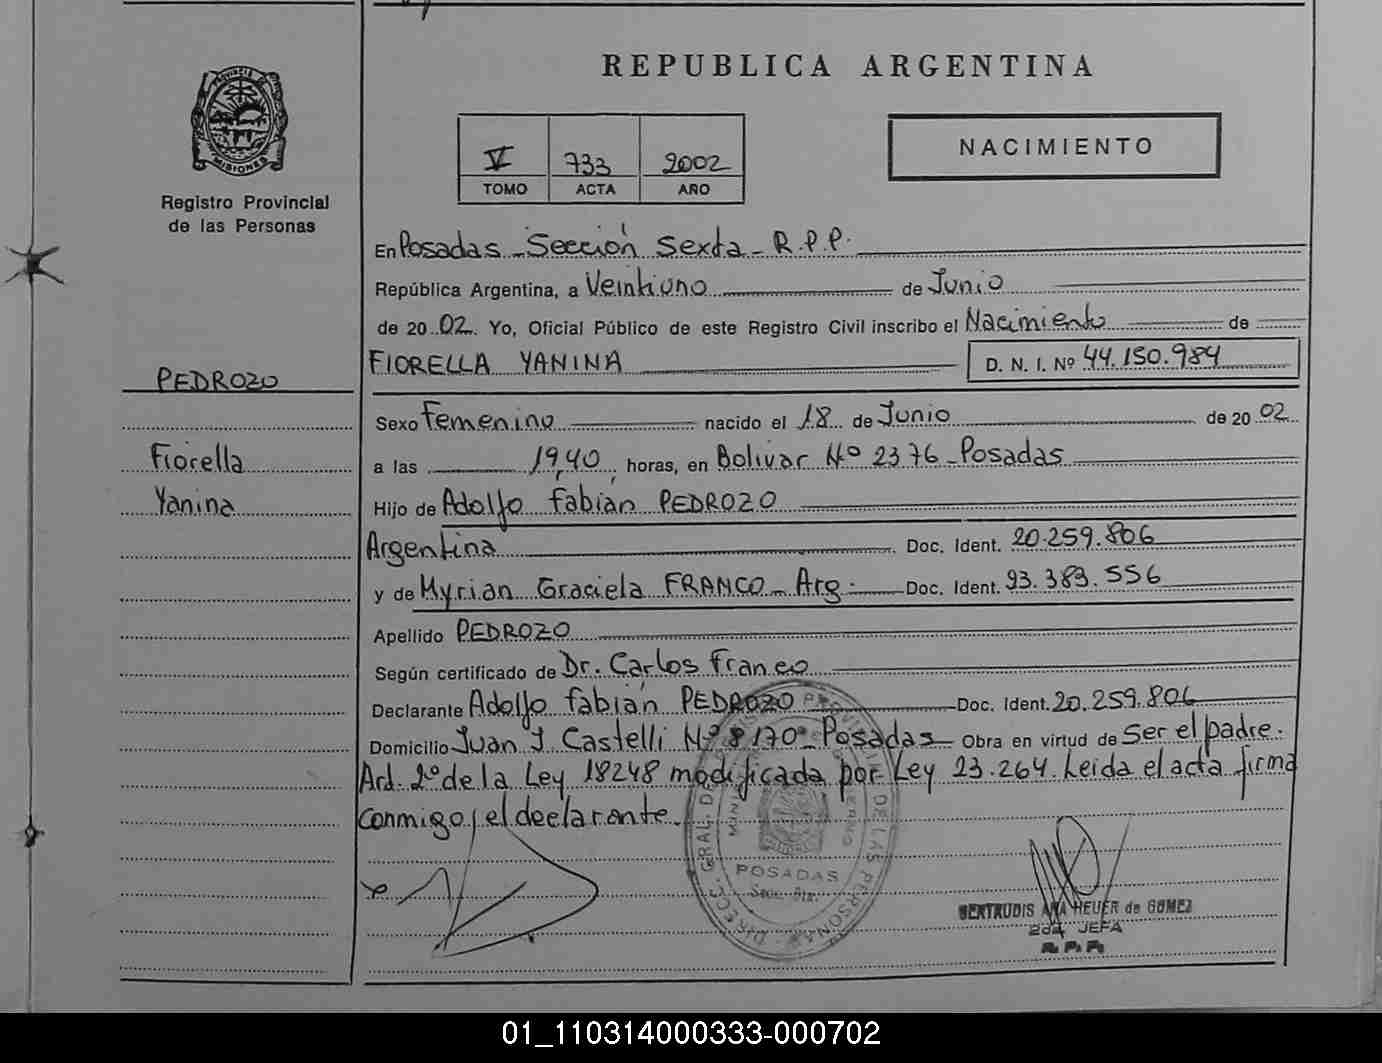 REPUBLICA ARGENTINA
PROVINCIA DE
MISIONES
Registro Provincial
de las Personas
V 733 2002
TOMO ACTA AÑO
NACIMIENTO
En Posadas - Sección Sexta - R.P.P.
República Argentina, a Veintiuno de Junio
de 20 02. Yo, Oficial Público de este Registro Civil inscribo el Nacimiento de
FIORELLA YANINA D. N. I. Nº 44.150.984
PEDROZO
Fiorella
Yanina
Sexo Femenino nacido el 18 de Junio de 20 02
a las 19,40 horas, en Bolívar Nº 2376 - Posadas
Hijo de Adolfo Fabián PEDROZO
Argentina Doc. Ident. 20.259.806
y de Myrian Graciela FRANCO - Arg. Doc. Ident. 93.383.556
Apellido PEDROZO
Según certificado de Dr. Carlos Franco
Declarante Adolfo Fabián PEDROZO Doc. Ident. 20.259.806
Domicilio Juan J Castelli Nº 8170 - Posadas Obra en virtud de Ser el padre.
Ard. 2º de la Ley 18248 modificada por Ley 23.264. Leida el acta firma
conmigo, el declarante.
POSADAS
DE LAS PERSONAS
GERTRUDIS ANA HEUER de GOMEZ
2da. JEFA
R.P.P.
01_110314000333-000702